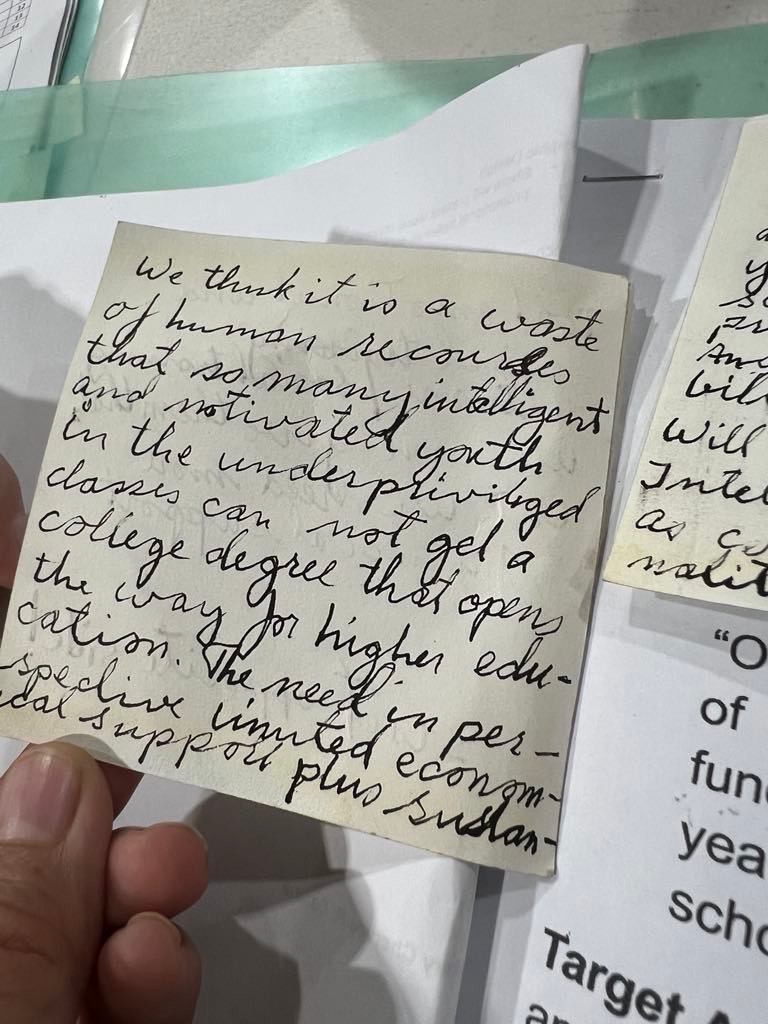 We think it is a waste
of human recourses
that so many intelligent
and motivated youth
in the underprivileged
classes can not get a
college degree that opens
the way for higher edu-
cation. The need in per-
spective limited econom-
ical support plus sustan-
y
so
pr
And
bil
will
Intel
as co
nalit
"O
of
fun
yea
scho
Target A